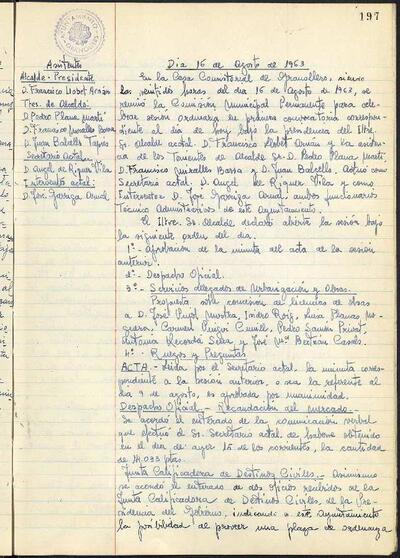 197
AYUNTAMIENTO
Asistentes
Alcalde-Presidente
D. Francisco Llobet Arnán
Ttes. de Alcalde
D. Pedro Plana Martí
D. Francisco Miralles Bassa
D. Juan Balcells Tapies
Secretario actal.
D. Angel de Riguer Vila
Interventor actal.
D. José Garriga Arnal
Dia 16 de Agosto de 1963
En la Casa Consistorial de Granollers, siendo
las veintidós horas del día 16 de Agosto de 1963, se
reunió la Comisión Municipal Permanente para celebrar
sesión ordinaria de primera convocatoria correspondiente
al día de hoy bajo la presidencia del Iltre.
Sr. Alcalde actal. D. Francisco Llobet Arnán y la asistencia
de los Tenientes de Alcalde Sr. D. Pedro Plana Martí,
D. Francisco Miralles Bassa y Juan Balcells. Actúa como
Secretario actal. D. Angel de Riguer Vila y como
Interventor D. José Garriga Arnal, ambos funcionarios
Técnico Administrativos de este Ayuntamiento.
El Iltre. Sr. Alcalde declara abierta la sesión bajo
la siguiente orden del día.
1º- Aprobación de la minuta del acta de la sesión
anterior.
2º- Despacho Oficial.
3º- Servicios delegados de Urbanización y Obras.
Propuesta sobre concesión de licencias de obras
a D. José Pujol Isidro Roig, Luisa Planas
Carmen Puigoi Cunill, Pedro Sanson Privat,
Antonia Recordà Selva y José Mª Beltrán Casals.
4º- Ruegos y Preguntas
ACTA.- Leída por el Secretario actal. la minuta correspondiente
a la sesión anterior, o sea la referente al
día 9 de agosto, es aprobada por unanimidad.
Despacho Oficial - Recaudación del mercado.-
Se acordó el enterado de la comunicación verbal
que efectúa el Sr. Secretario actal. de haberse obtenido
en el día de ayer 15 de los corrientes, la cantidad
de 14.033 ptas.
Junta Calificadora de Destinos Civiles.- Asimismo
se acordó el enterado de dos oficios recibidos de la
Junta Calificadora de Destinos Civiles, de la Presidencia
del Gobierno, indicando a este Ayuntamiento
la posibilidad de proveer una plaza de ordenanza